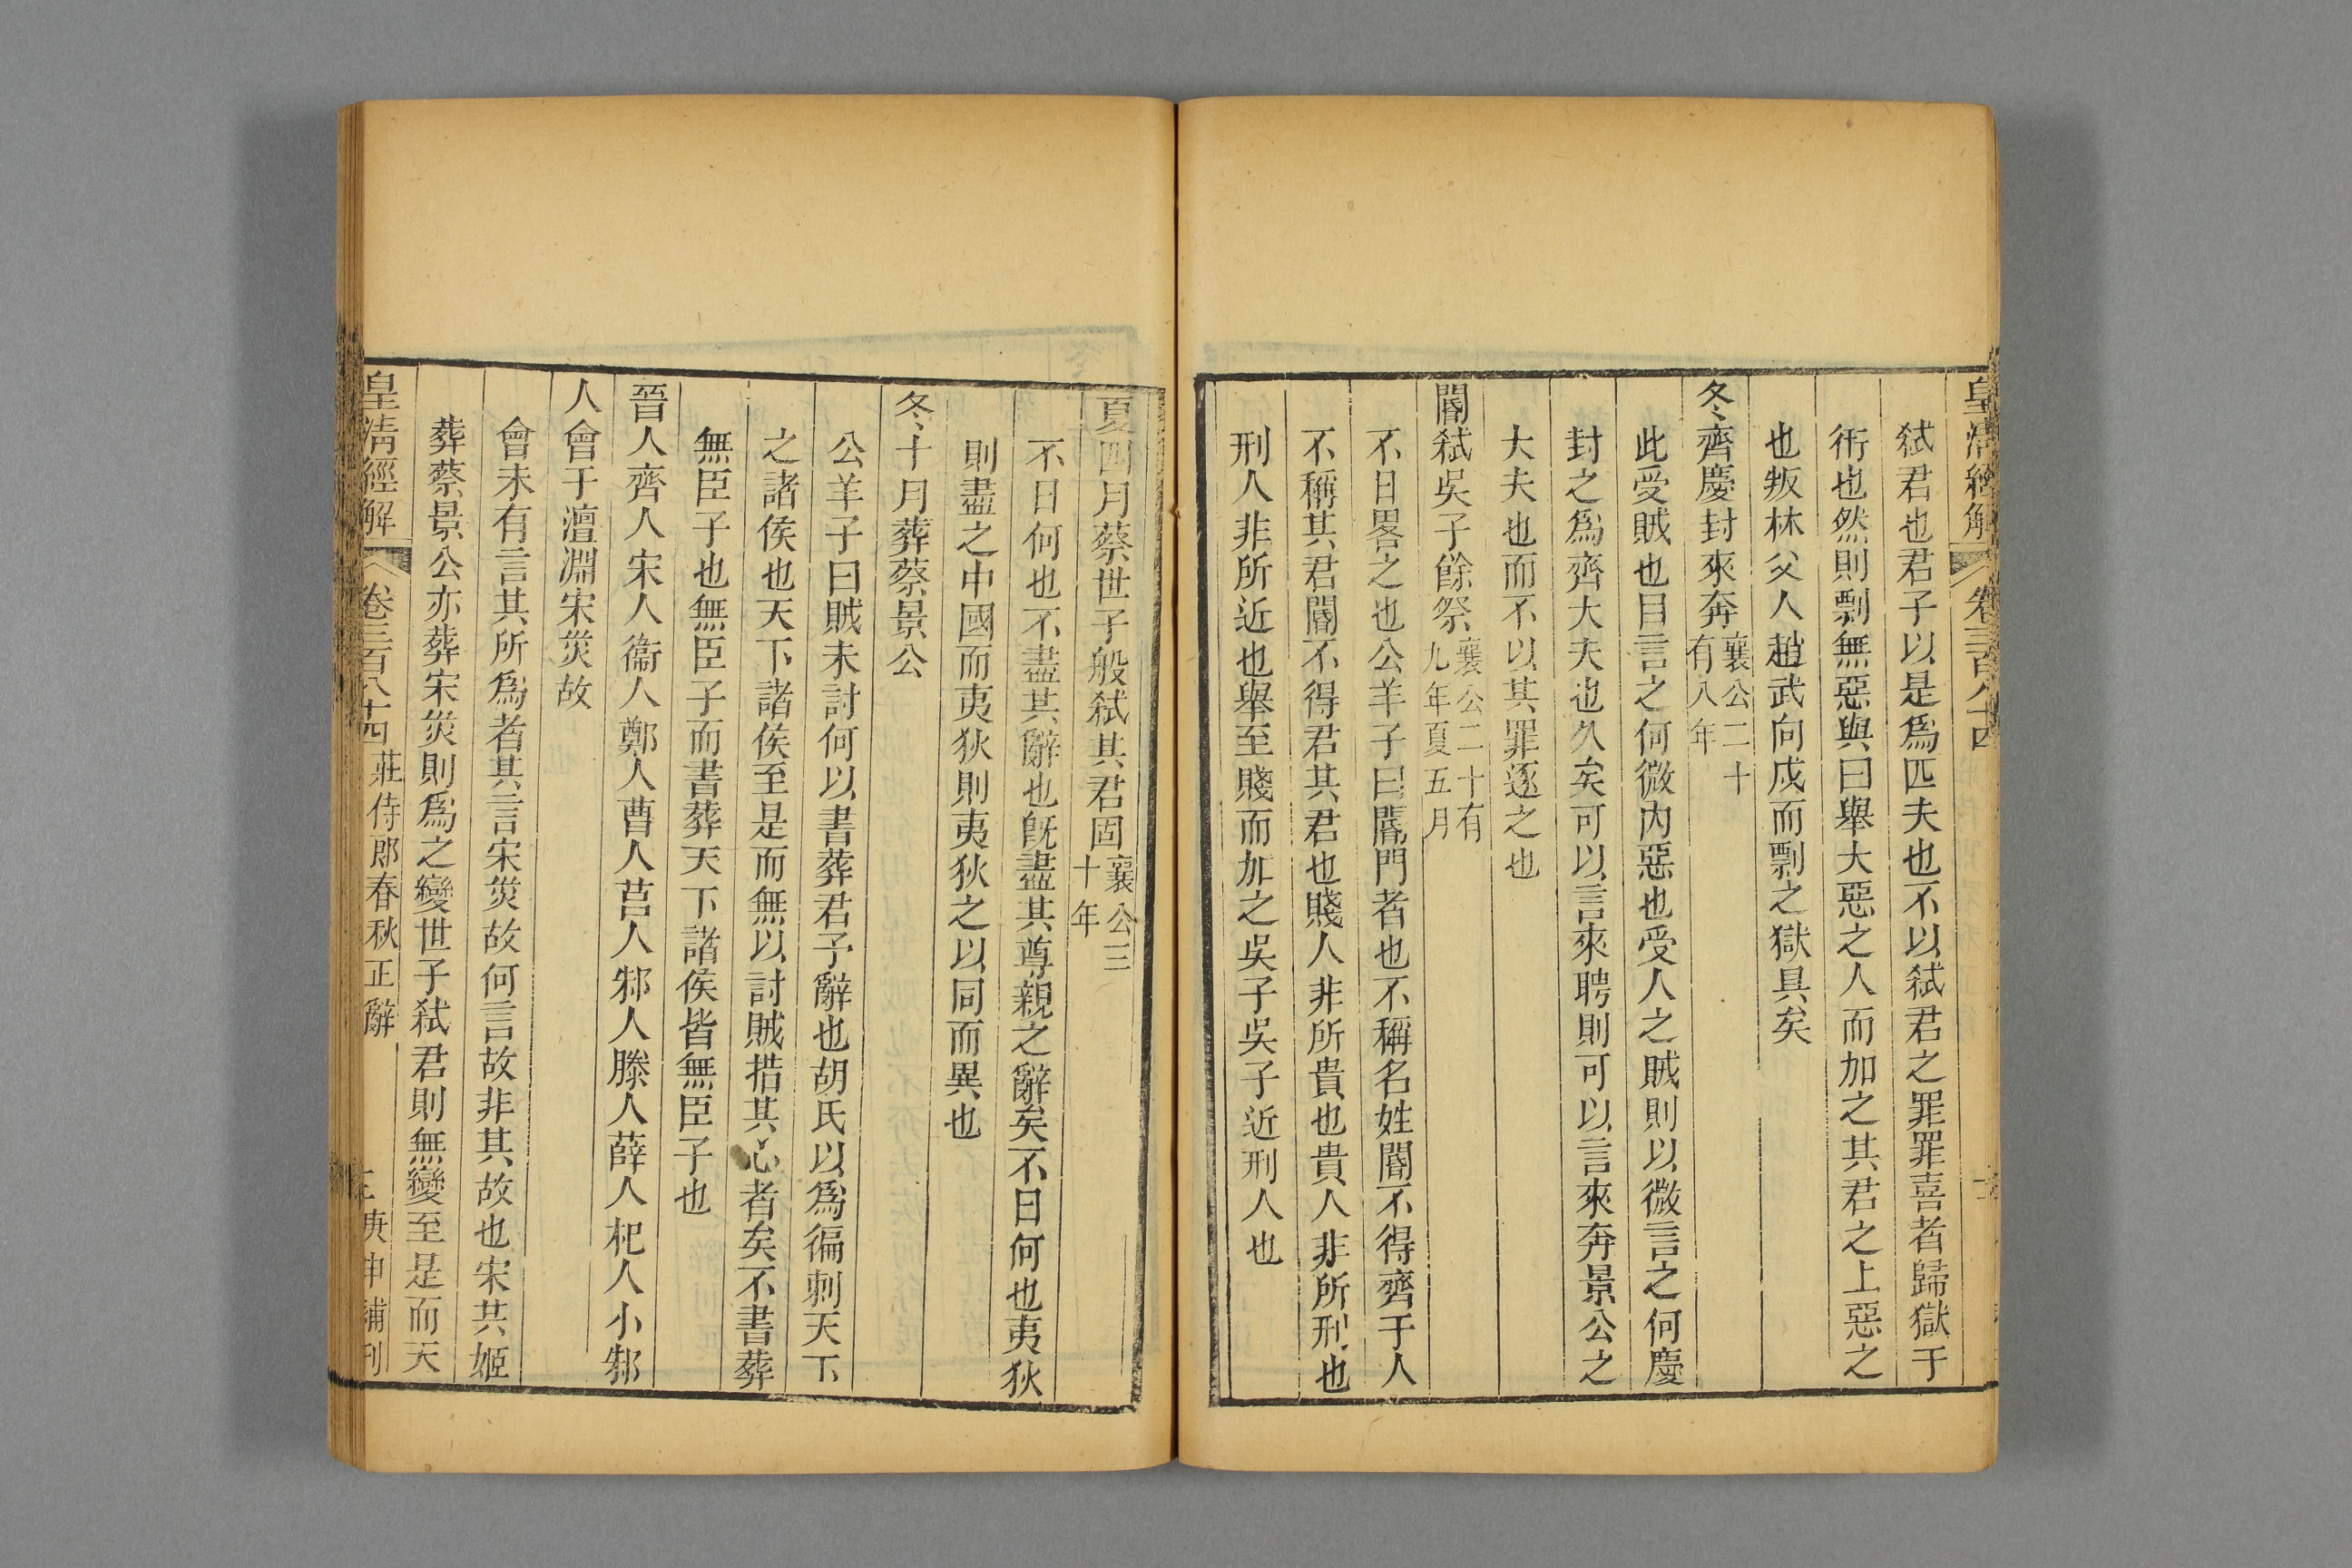 皇清經解 卷三百八十四
弒君也君子以是為匹夫也不以弒君之罪罪喜者歸獄于
衎也然則剽無惡與曰舉大惡之人而加之其君之上惡之
也叛林父人趙武向戌而剽之獄具矣
冬齊慶封來奔襄公二十有八年
此受賊也目言之何微內惡也受人之賊則以微言之何慶
封之爲齊大夫也久矣可以言來聘則可以言來奔景公之
大夫也而不以其罪逐之也
閽弒吳子餘祭襄公二十有九年夏五月
不日畧之也公羊子曰閽門者也不稱名姓閽不得齊于人
不稱其君閽不得君其君也賤人非所貴也貴人非所刑也
刑人非所近也舉至賤而加之吳子吳子近刑人也
夏四月蔡世子般弒其君固襄公三十年
不日何也不盡其辭也旣盡其尊親之辭矣不日何也夷狄
則盡之中國而夷狄則夷狄之以同而異也
冬十月葬蔡景公
公羊子曰賊未討何以書葬君子辭也胡氏以爲徧刺天下
之諸侯也天下諸侯至是而無以討賊措其心者矣不書葬
無臣子也無臣子而書葬天下諸侯皆無臣子也
晉人齊人宋人衞人鄭人曹人莒人邾人滕人薛人杞人小邾
人會于澶淵宋災故
會未有言其所爲者其言宋災故何言故非其故也宋共姬
葬蔡景公亦葬宋災則爲之變世子弒君則無變至是而天
皇清經解 卷三百八十四 莊侍郎春秋正辭 庚申補刊